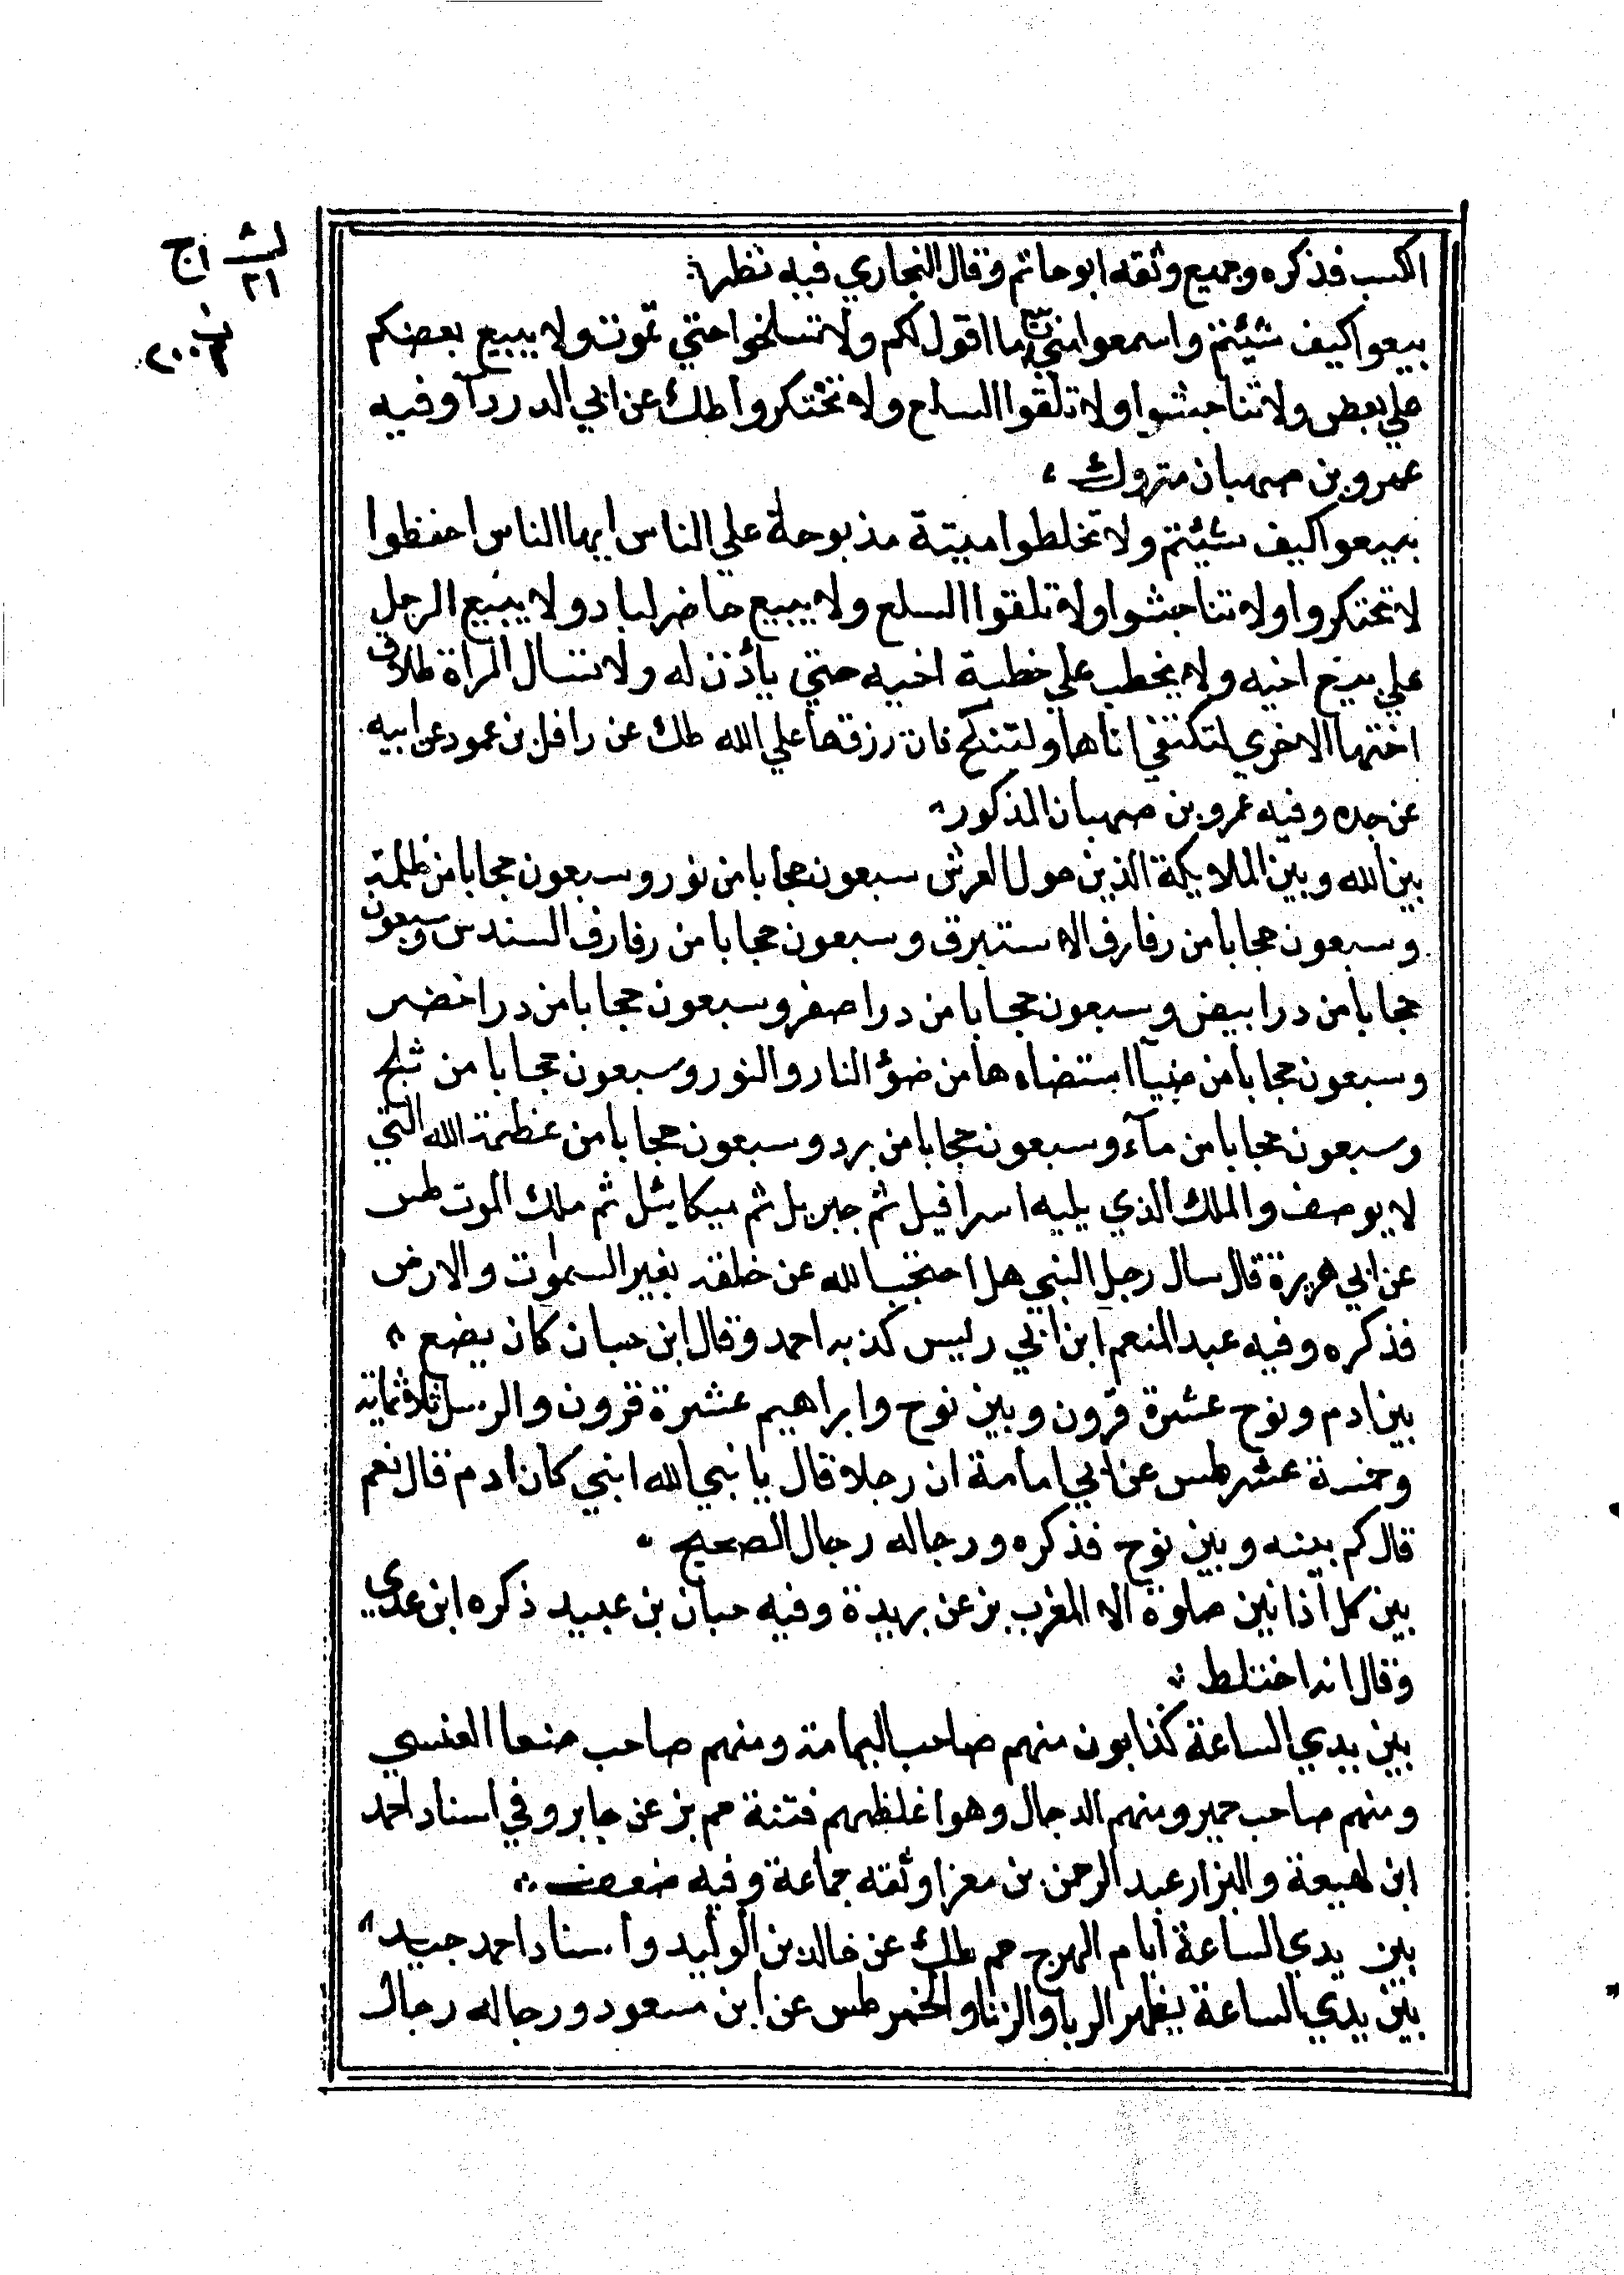 الكسب فذكره وجميع وثقه ابو حاتم وقال البخاري فيه نظر
بيعوا كيف شئتم واسمعوا مني ما اقول لكم ولا تسلخوا حتي تموت ولا يبيع بعضكم
علي بعض ولا تناجشوا ولا تلقوا السلع ولا تحتكروا طك عن ابي الدردآ وفيه
عمرو بن صهبان متروك
بيعوا كيف شئتم ولا تخلطوا ميتة مذبوحة علي الناس ايها الناس احفظوا
لا تحتكروا ولا تناجشوا ولا تلقوا السلع ولا يبيع حاضر لباد ولا يبيع الرجل
علي بيع اخيه ولا يخطب علي خطبة اخيه حتي يأذن له ولا تسال المراة طلاق
اختها الاخري لتكتفي اناها ولتنكح فان رزقها علي الله طك عن رافل بن عمود عن ابيه
عن جده وفيه عمرو بن صهبان المذكور
بين الله وبين الملايكة الذين حول العرش سبعون حجابا من نور وسبعون حجابا من ظلمة
وسبعون حجابا من رفارف الاستبرق وسبعون حجابا من رفارف السندس وسبعون
حجابا من در ابيض وسبعون حجابا من در اصفر وسبعون حجابا من در اخضر
وسبعون حجابا من ضيآ استضاه ها من ضؤ النار والنور وسبعون حجابا من ثلج
وسبعون حجابا من مآء وسبعون حجابا من برد وسبعون حجابا من عظمة الله التي
لا يوصف والملك الذي يليه اسرافيل ثم جبريل ثم ميكائيل ثم ملك الموت طس
عن ابي هريرة قال سال رجل النبي هل احتجب الله عن خلقه بغير السموات والارض
فذكره وفيه عبد المنعم ابن ابي ريس كذبه احمد وقال ابن حبان كان يضع
بين ادم ونوح عشرة قرون وبين نوح وابراهيم عشرة قرون والرسل ثلاثماية
وخمسة عشر طس عن ابي امامة ان رجلا قال يا نبي الله انبي كان ادم قال نعم
قال كم بينه وبين نوح فذكره ورجاله رجال الصحيح
بين كل اذانين صلوة الا المغرب بز عن بريدة وفيه حبان بن عبيد ذكره ابن عدي
وقال انه اختلط
بين يدي الساعة كذابون منهم صاحب اليمامة ومنهم صاحب صنعا العنسي
ومنهم صاحب حمير ومنهم الدجال وهو اغلظهم فتنة حم بز عن جابر وفي اسناد احمد
ابن لهيعة والبزار عبد الرحمن بن مغرا وثقه جماعة وفيه ضعف
بين يدي الساعة ايام الهرج حم طك عن خالد بن الوليد واسناد احمد جيد
بين يدي الساعة يظهر الربا والزنا والخمر طس عن ابن مسعود ورجاله رجال